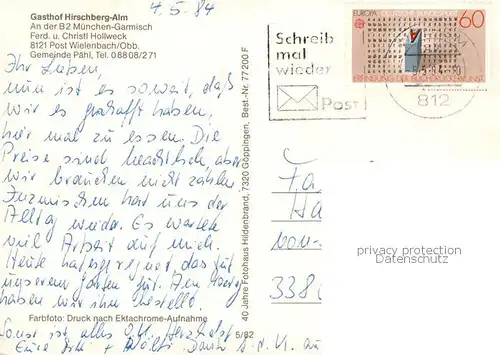 4.5.84
Gasthof Hirschberg-Alm
An der B2 München-Garmisch
Ferd. u. Christl Hollweck
8121 Post Wielenbach/Obb.
Gemeinde Pähl, Tel. 08808/271
Ihr Lieben,
nun ist es soweit, daß
wir es geschafft haben,
hier mal zu essen. Die
Preise sind beachtlich aber
wir brauchen nicht zählen
Inzwischen hat uns der
Alltag wieder. Es wartet
viel Arbeit auf mich.
Heute hat geregnet das tut
unserem Garten gut. Den
haben wir ihn bestellt.
Sonst ist alles O.K. Herzlichst
Eure + Dank
Farbfoto: Druck nach Ektachrome-Aufnahme
5/82
40 Jahre Fotohaus Hildenbrand, 7320 Göppingen, Best.-Nr. 77 200 F
Schreib
mal
wieder
Post
EUROPA
60
ERFINDUNG DER BUCHDRUCKERKUNST
812
Fa
Ha
338
privacy protection
Datenschutz